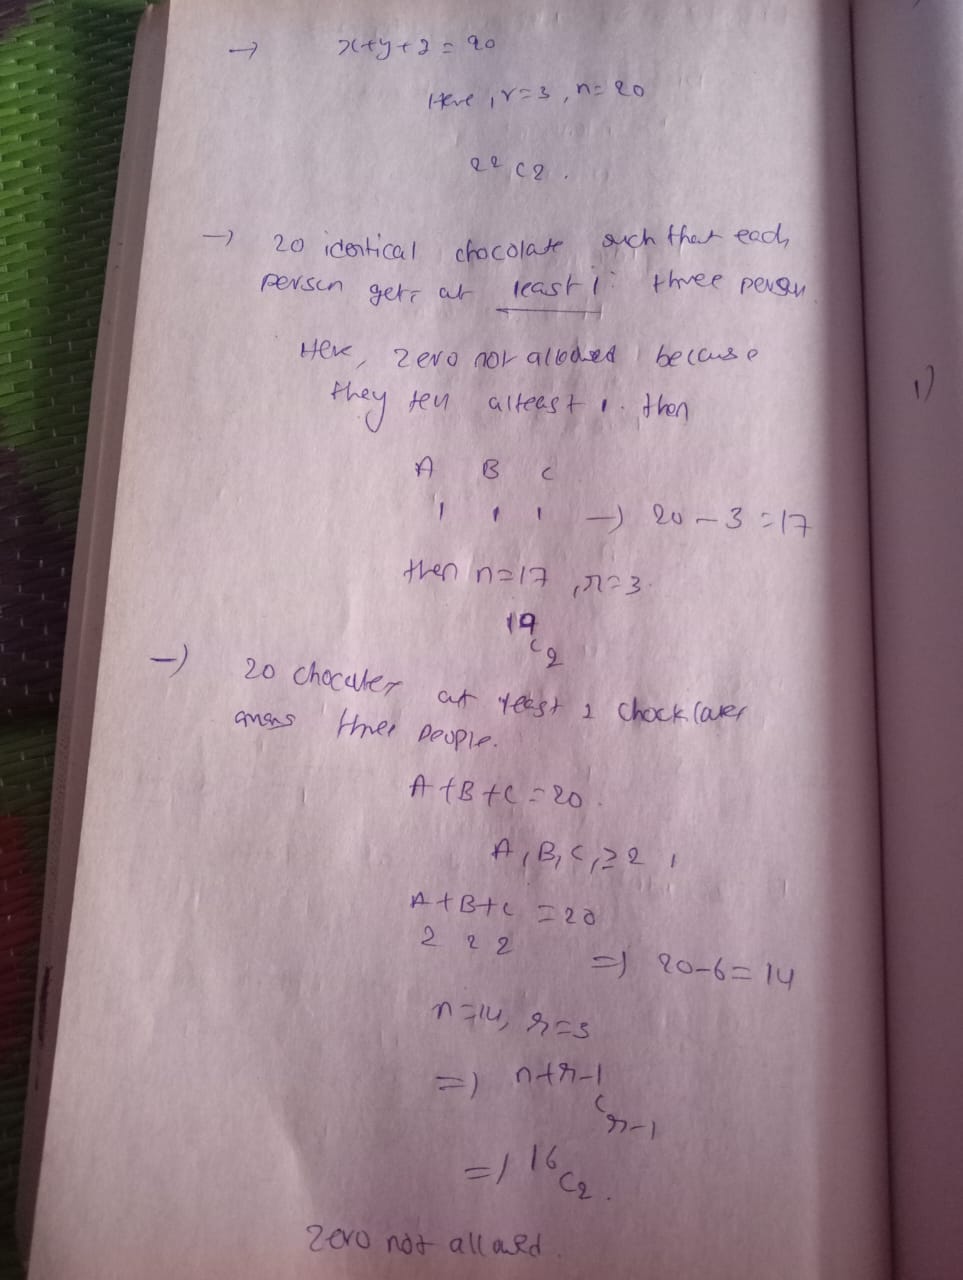 → x+y+z = 20
Here, r=3, n=20
²²C₂.
→ 20 identical chocolate such that each
person gets at least 1. three person
Here, zero not allowed because
they tell atleast 1. then
A B C
1 1 1 → 20-3=17
then n=17, r=3.
¹⁹C₂
→ 20 at least 2
three people.
A+B+C=20.
A, B, C, ≥2,
A+B+C = 20
2 2 2 ⇒ 20-6=14
n=14, r=3
⇒ ⁿ⁺ʳ⁻¹Cᵣ₋₁
⇒ ¹⁶C₂.
zero not allowed.
1)